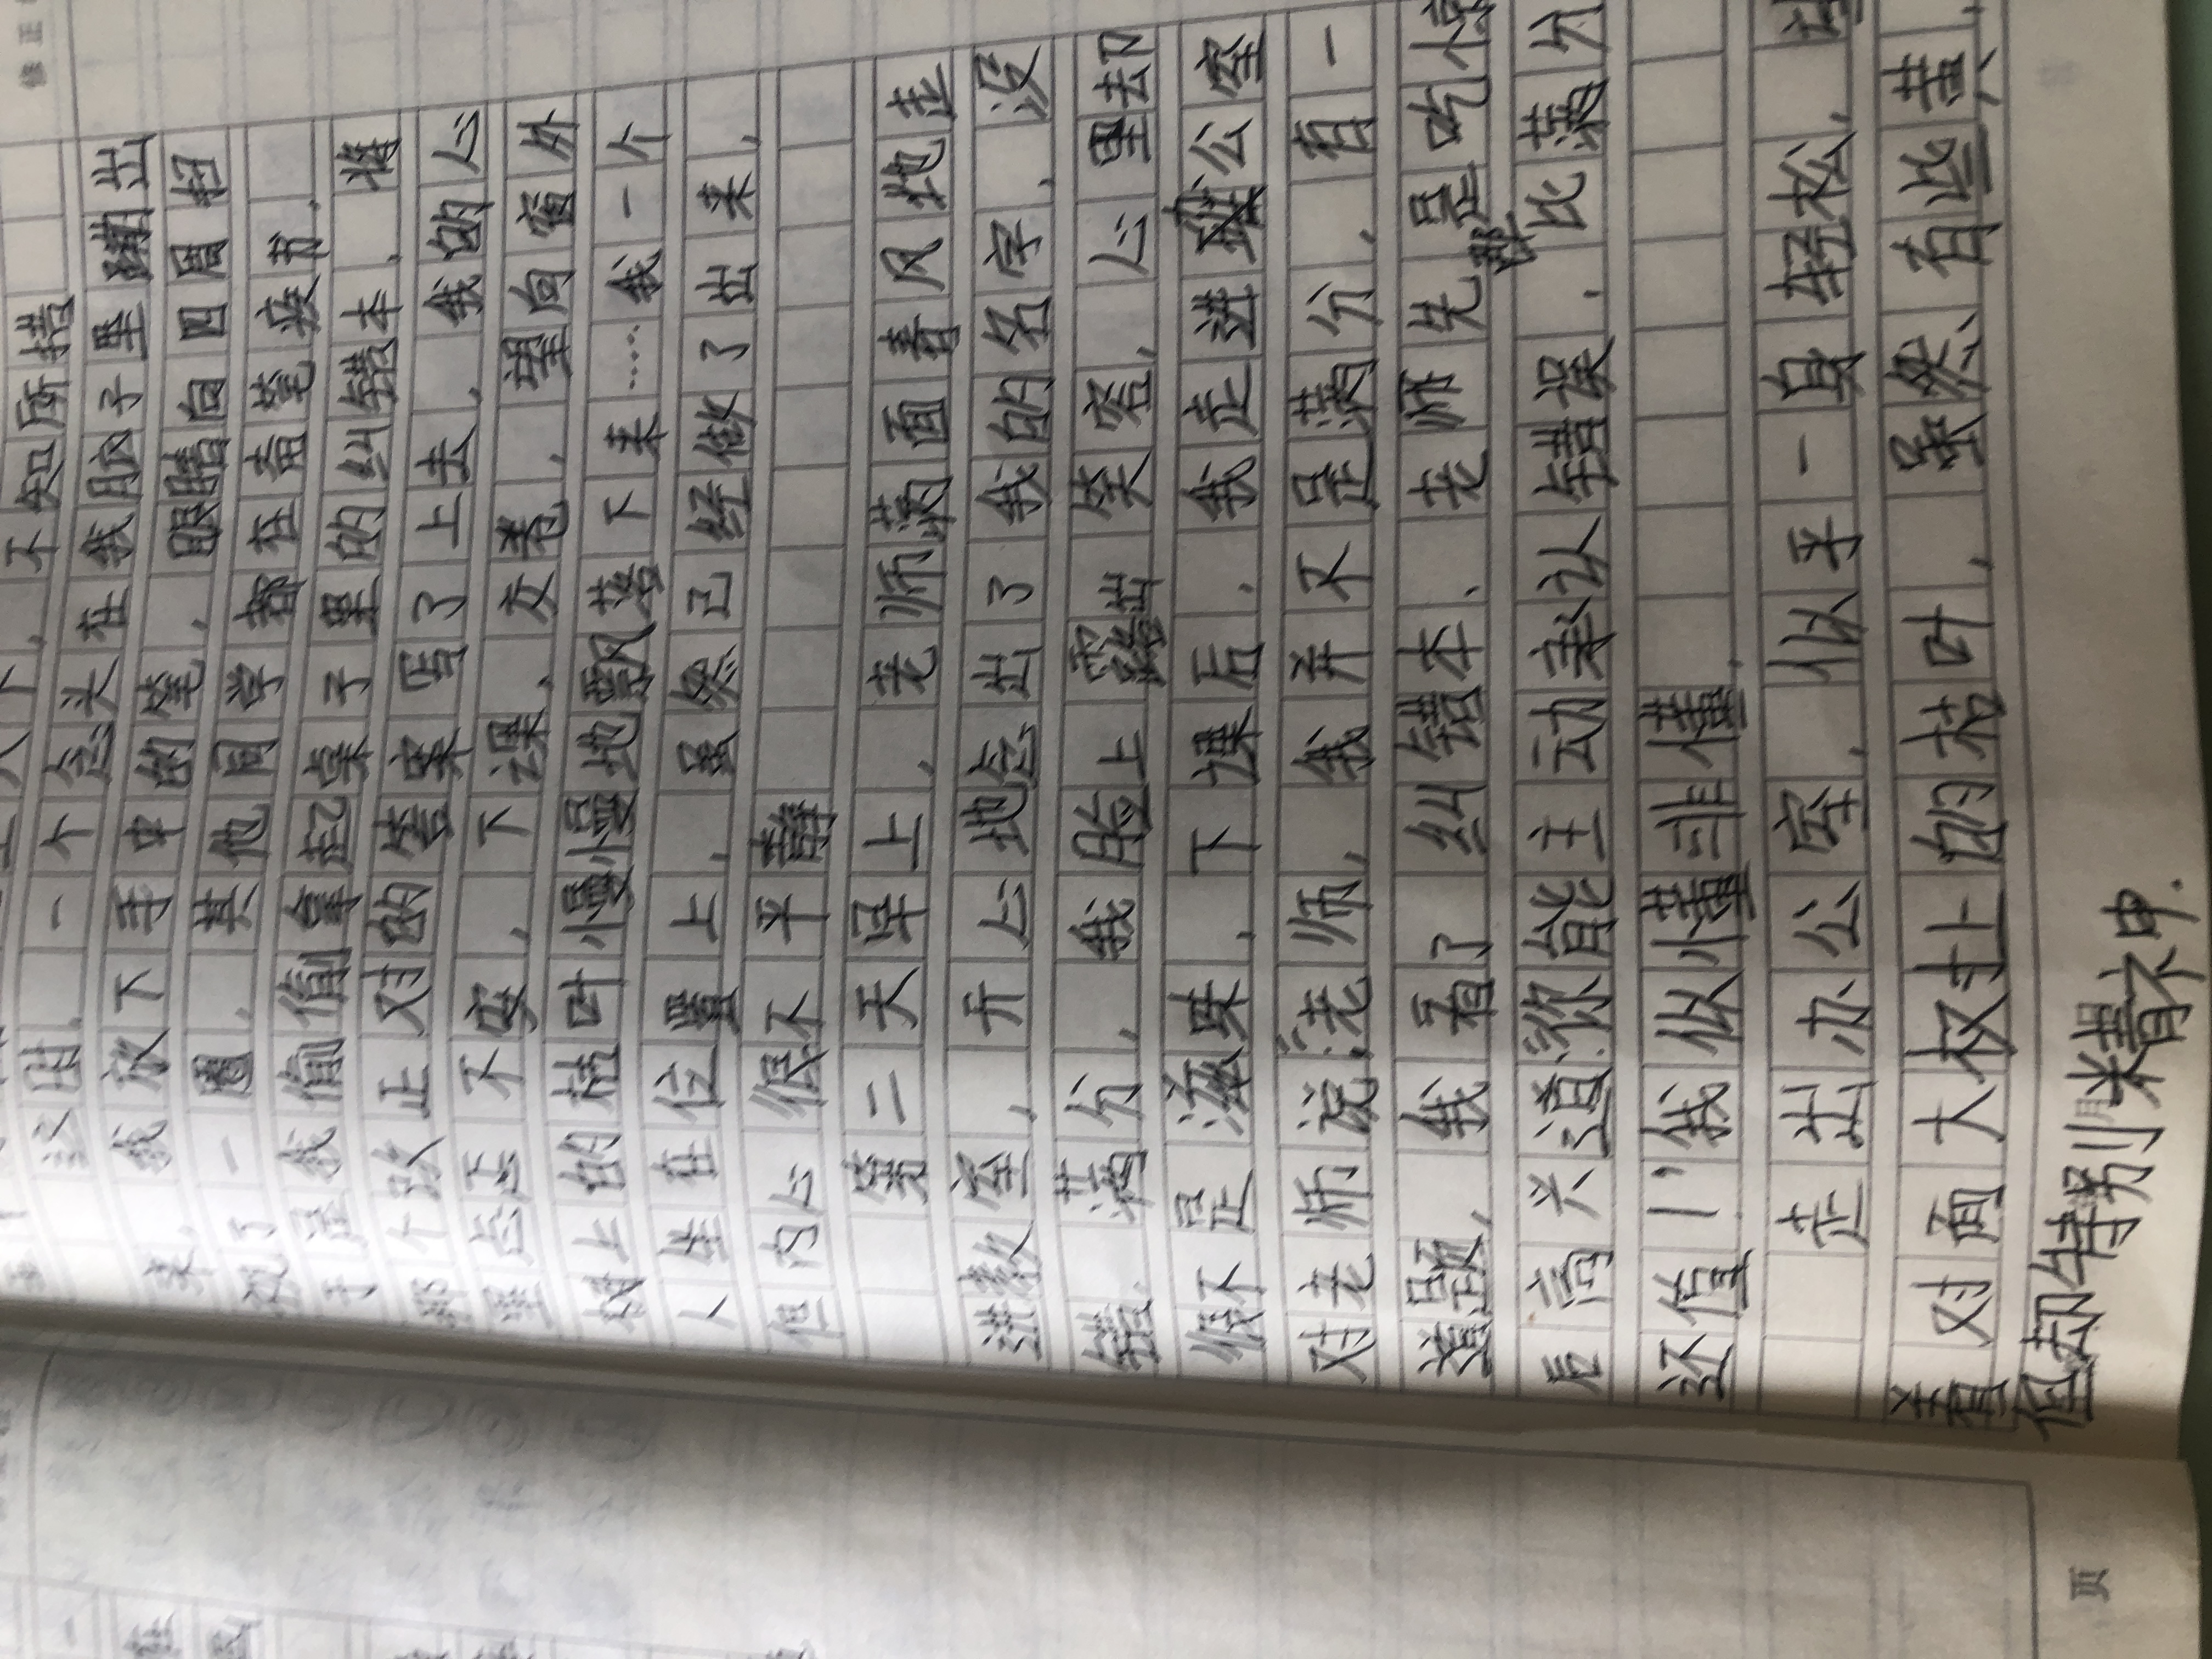 不知所措
这时,一个念头在我脑子里蹦出
来,我放下手中的笔,眼睛向四周扫
视了一圈,其他同学都在奋笔疾书,
于是我偷偷拿起桌子里的纠错本,将
那个改正对的答案写了上去,我的心
里忐忑不安,下课,交卷,望向窗外
树上的枯叶慢慢地飘落下来……我一个
人坐在位置上,虽然已经做了出来,
但内心很不平静
第二天早上,老师满面春风地走
进教室,开心地念出了我的名字,没
错,满分,我脸上露出笑容,心里却
很不是滋味,下课后,我走进公室
对老师说:“老师,我并不是满分,有一
道题,我看了纠错本、老师先是吃惊
后高兴道:你能主动承认错误,那比满分
还值!”我似懂非懂,
走出办公室,似乎一身轻松,
看对面大树上的枯叶,虽然有些黄,
但却特别精神.
页